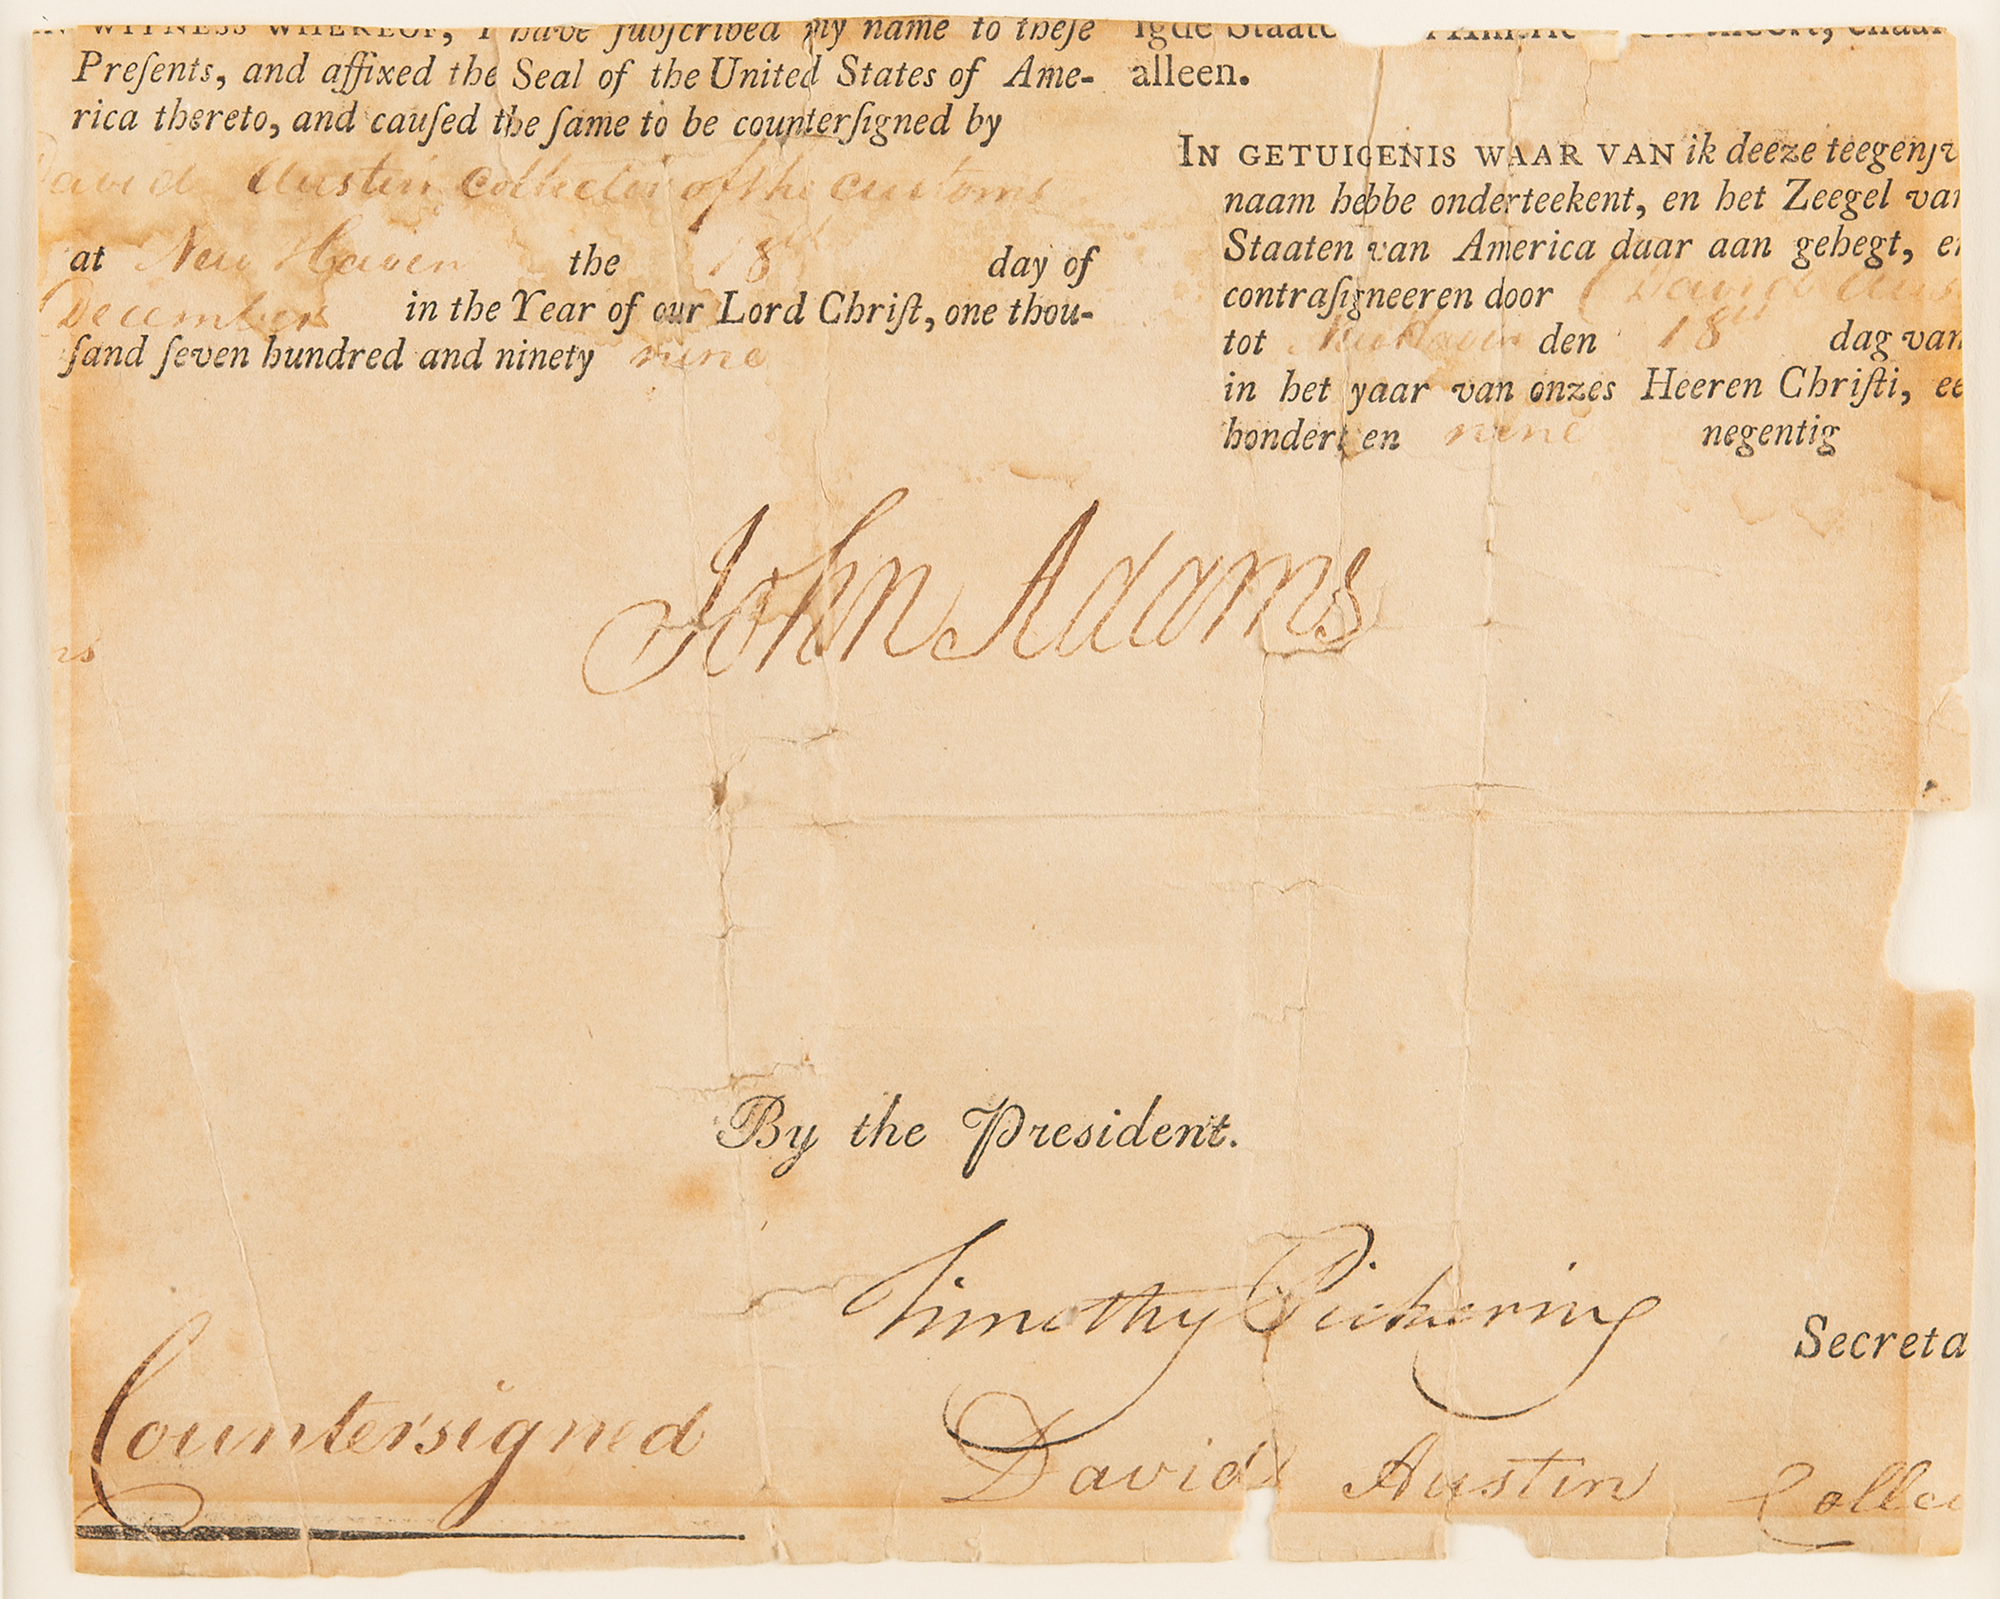 IN WITNESS WHEREOF, I have ſubſcribed my name to theſe
Preſents, and affixed the Seal of the United States of Ame-
rica thereto, and cauſed the ſame to be counterſigned by
David Austin Collector of the customs
at New Haven the 18th day of
December in the Year of our Lord Chriſt, one thou-
ſand ſeven hundred and ninety nine
alleen.
IN GETUIGENIS WAAR VAN ik deeze
naam hebbe onderteekent, en het Zeegel van
Staaten van America daar aan gehegt, en
contraſigneeren door David Aus
tot New Haven den 18th dag van
in het yaar van onzes Heeren Chriſti, ee
hondert en nine negentig
John Adams
ns
By the President.
Timothy Pickering
Secreta
Countersigned
David Austin Collec